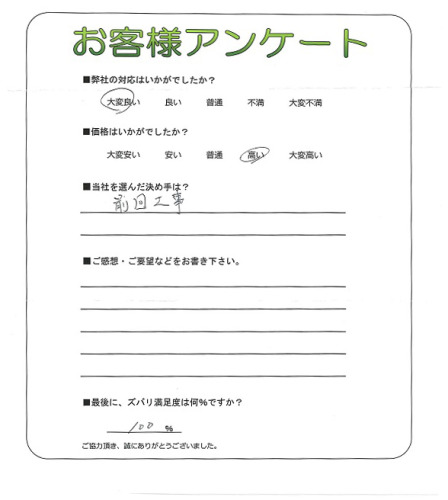 お客様アンケート
■弊社の対応はいかがでしたか？
大変良い 良い 普通 不満 大変不満
■価格はいかがでしたか？
大変安い 安い 普通 高い 大変高い
■当社を選んだ決め手は？
前回工事
■ご感想・ご要望などをお書き下さい。
■最後に、ズバリ満足度は何%ですか？
100 %
ご協力頂き、誠にありがとうございました。